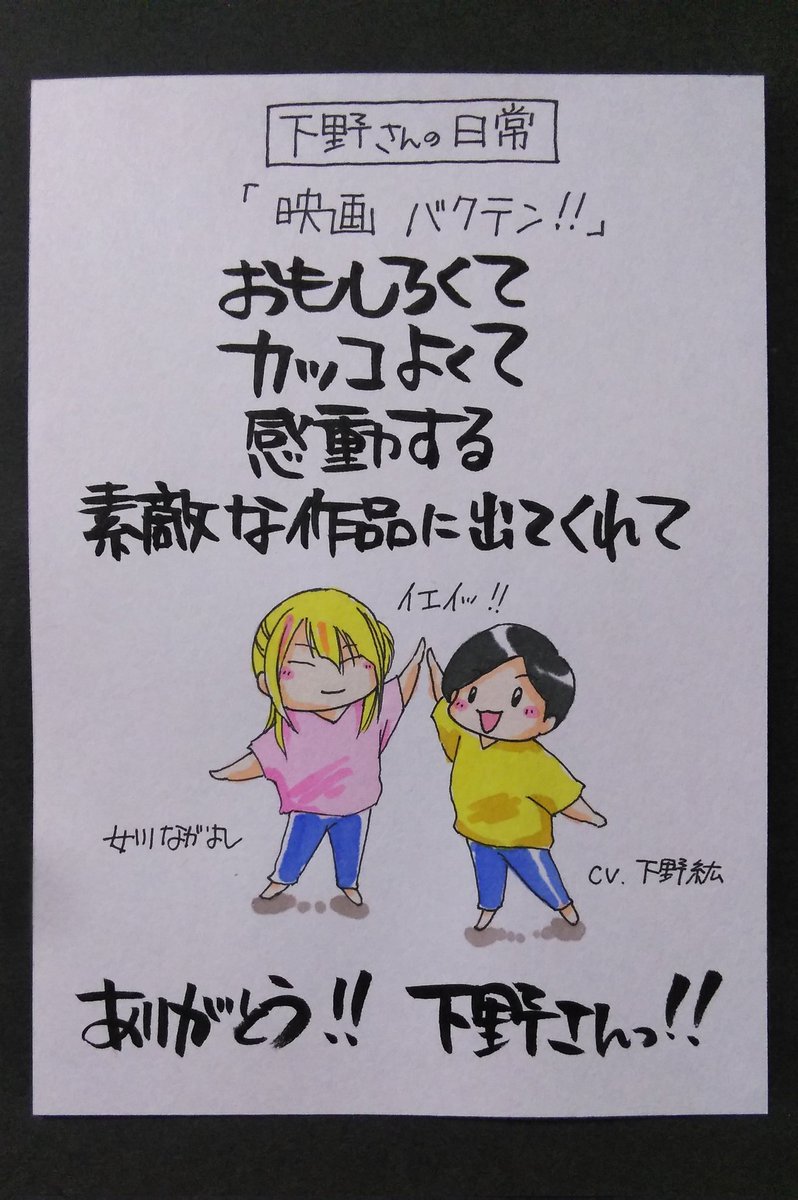 下野さんの日常
「映画 バクテン!!」
おもしろくて
カッコよくて
感動する
素敵な作品に出てくれて
イエイッ!!
女川ながよし
CV. 下野紘
ありがとう!! 下野さんっ!!